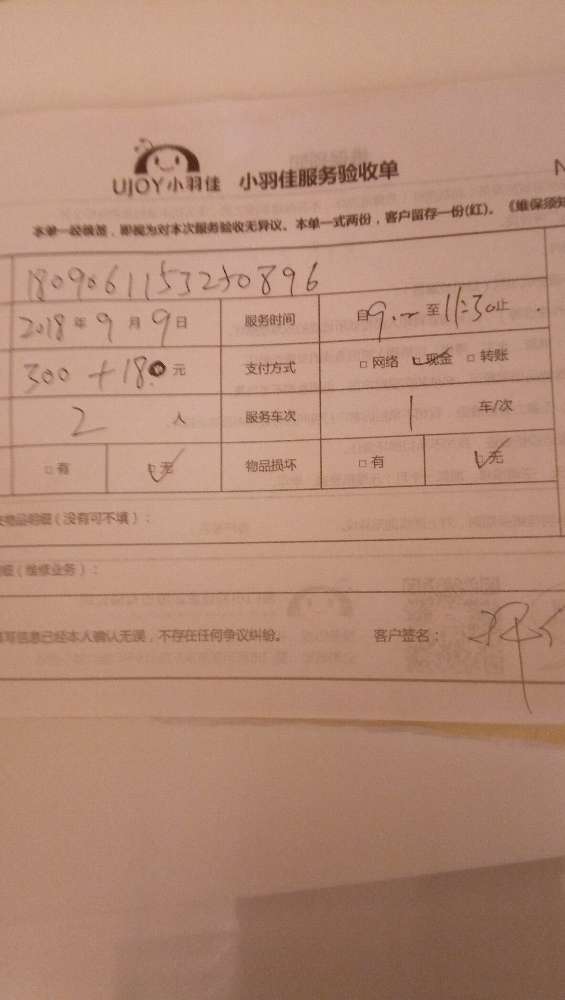 UJOY小羽佳 小羽佳服务验收单 N
本单一经填签，即视为对本次服务验收无异议。本单一式两份，客户留存一份(红)。《维保须知
1809061153250896
2018年9月9日 服务时间 自9:00至11:30止
300+180元 支付方式 □网络 ☑现金 □转账
2人 服务车次 1车/次
□有 ☑无 物品损坏 □有 ☑无
物品明细（没有可不填）：
细（维修业务）：
写信息已经本人确认无误，不存在任何争议纠纷。 客户签名：